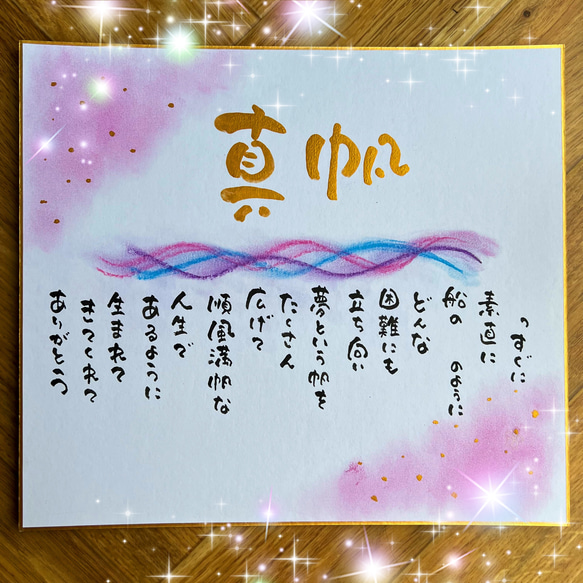 真帆
っすぐに
素直に
船の　のように
どんな
困難にも
立ち向い
夢という帆を
たくさん
広げて
順風満帆な
人生で
あるように
生まれて
きてくれて
ありがとう